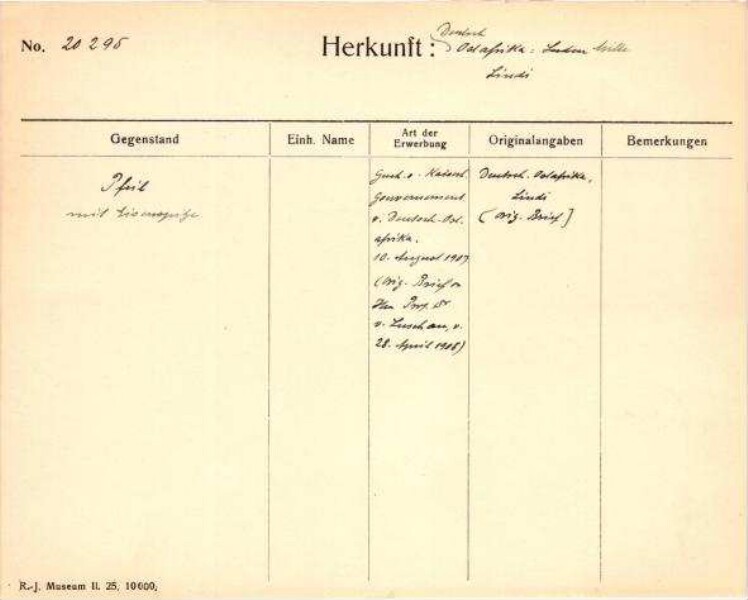 No. 20 295
Herkunft : Deutsch
Ostafrika :
Lindi
Gegenstand
Einh. Name
Art der
Erwerbung
Originalangaben
Bemerkungen
Pfeil
mit Eisenspitze
Gesch. v. Kaiserl.
Gouvernement
v. Deutsch-Ost-
afrika.
10. August 1907
(Orig. Brief v.
Hrn Prof. Dr
v. Luschan, v.
28. April 1908)
Deutsch. Ostafrika,
Lindi
(Orig. Brief]
R.-J. Museum II. 25, 10000,